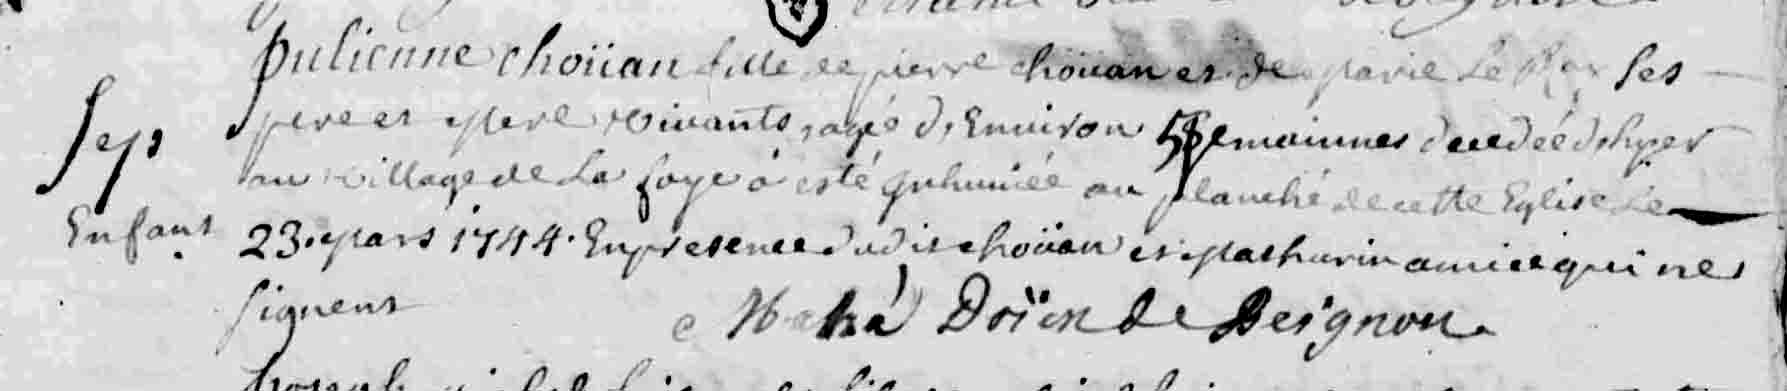 Julienne choüan fille de pierre choüan et de Marie Le Roy Ses
pere et Mere vivants, agée d'Environ 5 Semainnes decedée d'hyer
Sep au village de La foye a esté Inhumée au planché de cette Eglise Le
Enfant 23. Mars 1744. En presence dudit choüan et Mathurin amice qui ne
signent
Doïen de Beignon